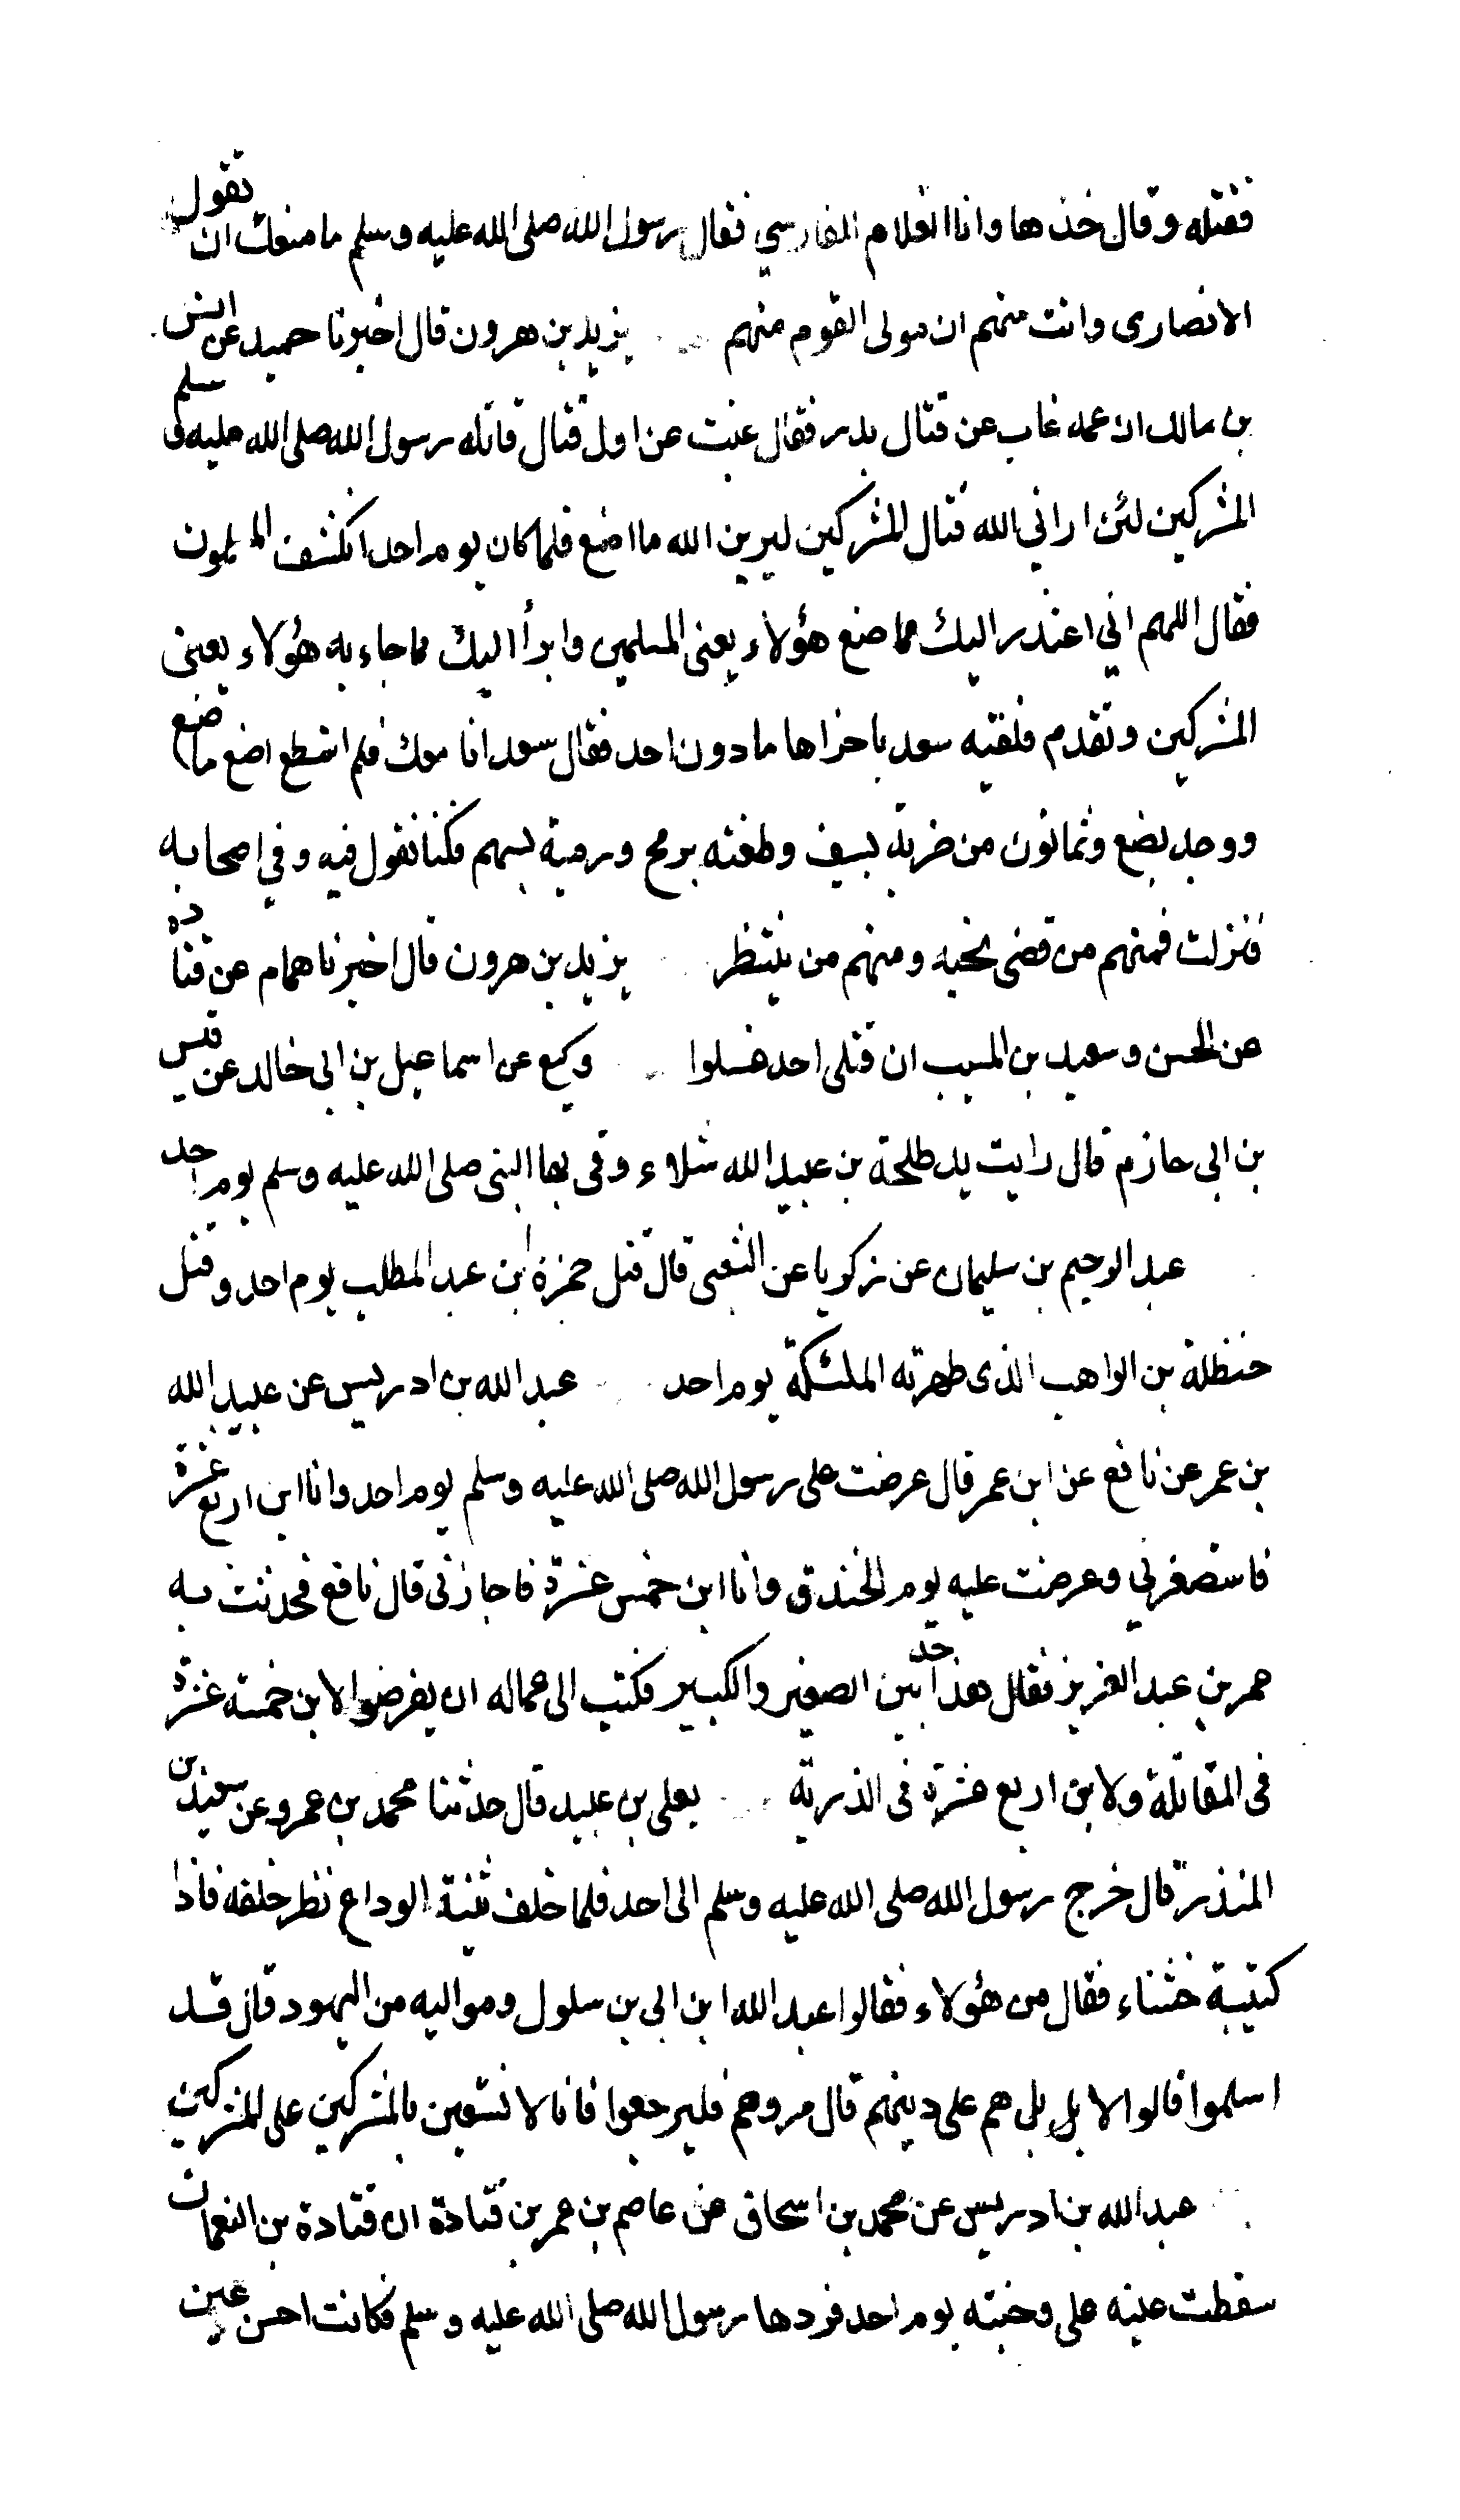 فقتله وقال خذها وانا الغلام الفارسي فقال رسول الله صلى الله عليه وسلم ما منعك ان تقول
الانصارى وانت منهم ان مولى القوم منهم يزيد بن هرون قال اخبرنا حميد عن انس
بن مالك ان عمه غاب عن قتال بدر فقال غبت عن اول قتال قاتله رسول الله صلى الله عليه وسلم
المشركين لئن اراني الله قتال المشركين ليرين الله ما اصنع فلما كان يوم احد انكشف المسلمون
فقال اللهم اني اعتذر اليك مما صنع هؤلاء يعنى المسلمين وابرأ اليك مما جاء به هؤلاء يعنى
المشركين وتقدم فلقيه سعد باخراها ما دون احد فقال سعد انا معك فلم استطع اصنع ما صنع
ووجد بضع وثمانون من ضربة بسيف وطعنه برمح ورمية بسهم فكنا نقول فيه وفي اصحابه
فنزلت فمنهم من قضى نحبه ومنهم من ينتظر يزيد بن هرون قال اخبرنا همام عن قتادة
عن الحسن وسعيد بن المسيب ان قتلى احد غسلوا وكيع عن اسماعيل بن ابى خالد عن قيس
بن ابى حازم قال رايت يد طلحة بن عبيد الله شلاء وقى بها النبى صلى الله عليه وسلم يوم احد
عبد الرحيم بن سليمان عن زكريا عن الشعبى قال قتل حمزة ابن عبد المطلب يوم احد وقتل
حنظلة بن الراهب الذى طهرته الملئكة يوم احد عبد الله بن ادريس عن عبيد الله
بن عمر عن نافع عن ابن عمر قال عرضت على رسول الله صلى الله عليه وسلم يوم احد وانا ابن اربع عشرة
فاستصغرني وعرضت عليه يوم الخندق وانا ابن خمس عشرة فاجازنى قال نافع فحدثت به
عمر بن عبد العزيز فقال هذا حد بين الصغير والكبير فكتب الى عماله ان يفرضوا لابن خمسة عشرة
فى المقاتلة ولابن اربع عشرة فى الذرية يعلى بن عبيد قال حدثنا محمد بن عمرو عن سعيد بن
المنذر قال خرج رسول الله صلى الله عليه وسلم الى احد فلما خلف ثنية الوداع نظر خلفه فاذا
كتيبة خشناء فقال من هؤلاء فقالوا عبد الله ابن ابى بن سلول ومواليه من اليهود قال قد
اسلموا قالوا لا بل بل هم على دينهم قال مروهم فليرجعوا فانا لا نستعين بالمشركين على المشركين
عبد الله بن ادريس عن محمد بن اسحاق عن عاصم بن عمر بن قتادة ان قتادة بن النعمان
سقطت عينه على وجنته يوم احد فردها رسول الله صلى الله عليه وسلم فكانت احسن عين